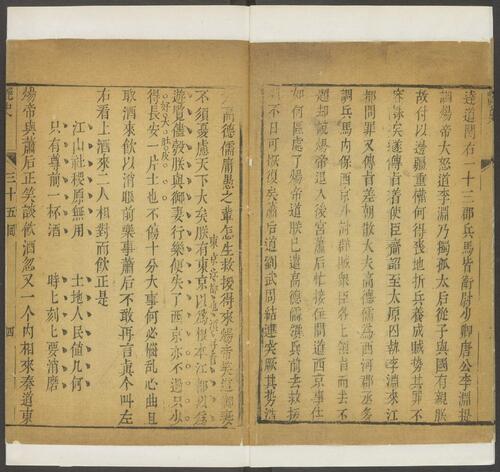 達道關右一十三郡兵馬皆衛尉少卿唐公李淵提
調煬帝大怒道李淵乃獨孤太后從子與國有親朕
故付以邊疆重權何得喪地折兵養成賊勢其罪不
容誅矣遂傳旨差使臣齎詔至太原囚執李淵來江
都問罪又傳旨差朝散大夫高德儒為西河郡丞多
調兵馬內保西京外討群賊眾臣各上領旨而去不
題却說煬帝退入後宮蕭后忙接住問道西京事仕
如何區處了煬帝道朕已遣高德儒領兵前去救援
不日可恢復矣蕭后道劉武周結連突厥其勢浩
大高德儒庸愚之輩怎生救援得來煬帝笑道御妻
不須憂慮天下大矣朕有東京以為根本江都以為
東京
遊覽儘彀朕與御妻行樂便失了西京亦不過只少
得長安一片土也不傷十分大事何必惱亂心曲且
取酒來飲以消眼前樂事蕭后不敢再言眞个叫左
右看上酒來二人相對而飲正是
江山社稷原無用 土地人民値几何
只有尊前一杯酒 時上刻上要消磨
煬帝與蕭后正笑談飲酒忽又一个內相來奏道東
艷史 三十五囘 四